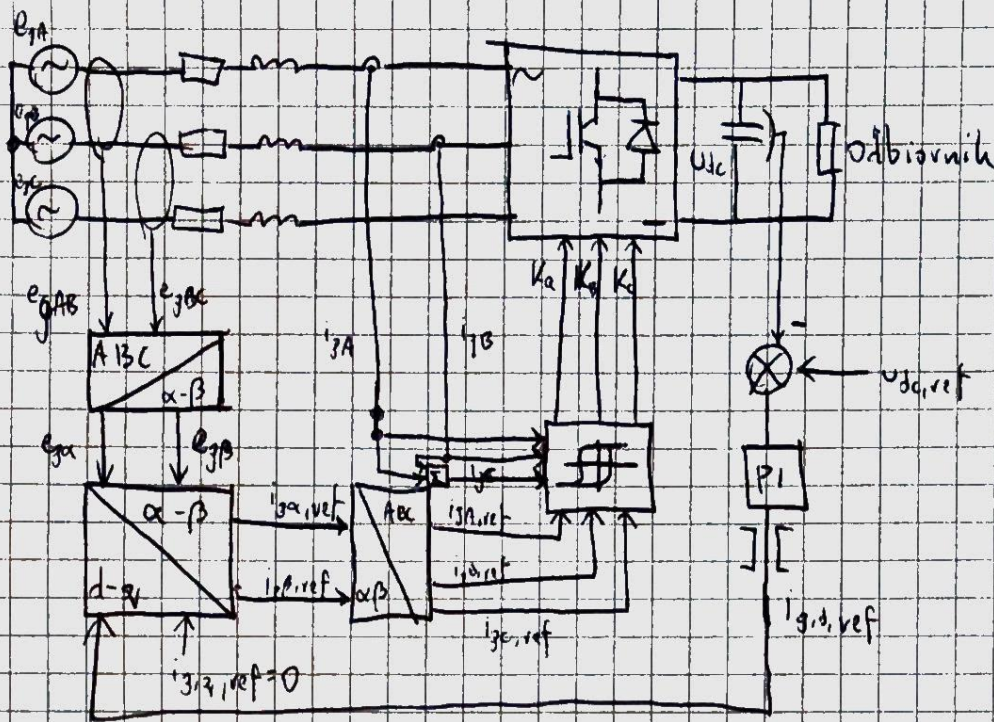 e_gA
e_gB
e_gC
~
u_dc
Odbiornik
K_a K_b K_c
e_gAB
e_gBC
i_gA
i_gB
-
u_dc,ref
ABC
α-β
e_gα
e_gβ
PI
α-β
d-q
i_gα,ref
i_gβ,ref
Σ
i_gC
ABC
αβ
i_gA,ref
i_gB,ref
i_gC,ref
i_g,d,ref
i_g,q,ref=0